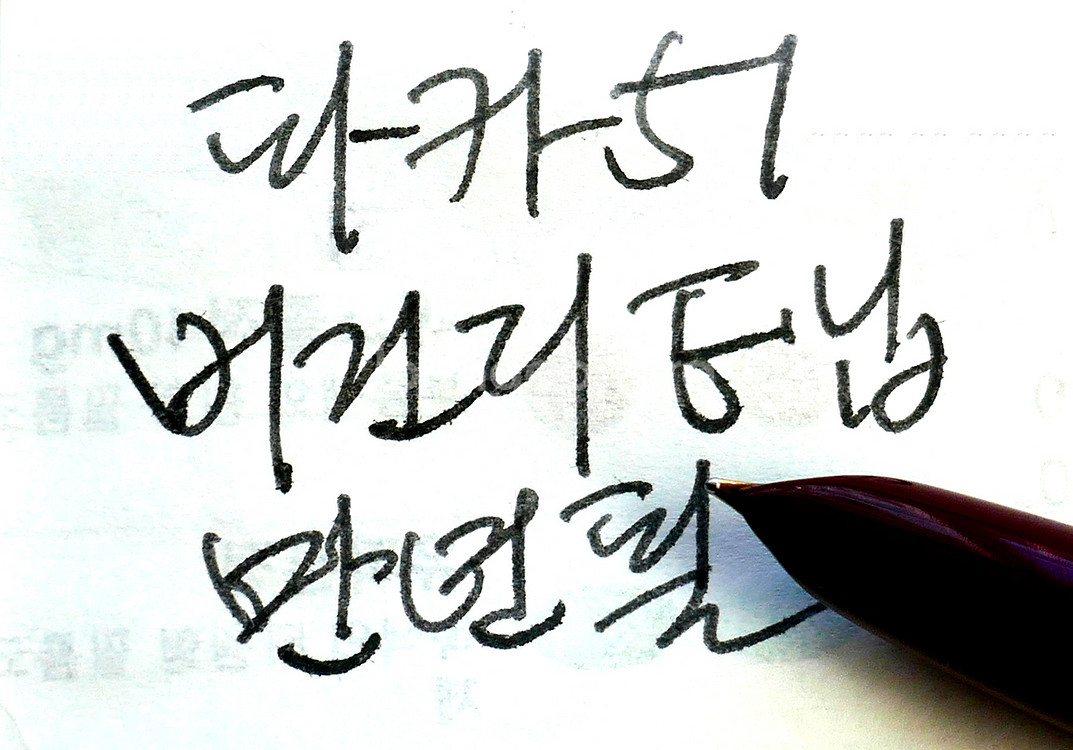 파카51
버건디 닙
만년필